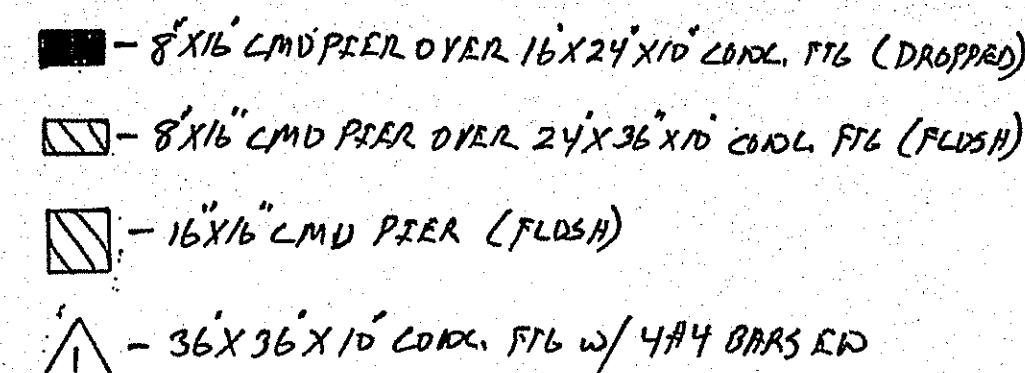 - 8"X16" CMU PIER OVER 16"X24"X10" CONC. FTG (DROPPED)
- 8"X16" CMU PIER OVER 24"X36"X10" CONC. FTG (FLUSH)
- 16"X16" CMU PIER (FLUSH)
1 - 36"X36"X10" CONC. FTG W/ 4#4 BARS EW